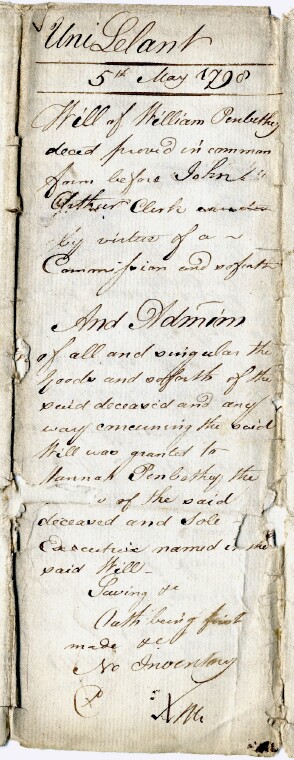 Uni Lelant
5th May 1798
Will of William Penbethy
deced proved in common
form before John
Arthur Clerk
by virtue of a ~
Commission and soforth
And Admõn
of all and singular the
Goods and soforth of the
said deceased and any
way concerning the said
Will was granted to
Hannah Penbethy the
of the said
deceased and Sole
Executrix named in the
said Will_
Saving &c
Oath being first
made &c
No Inventory